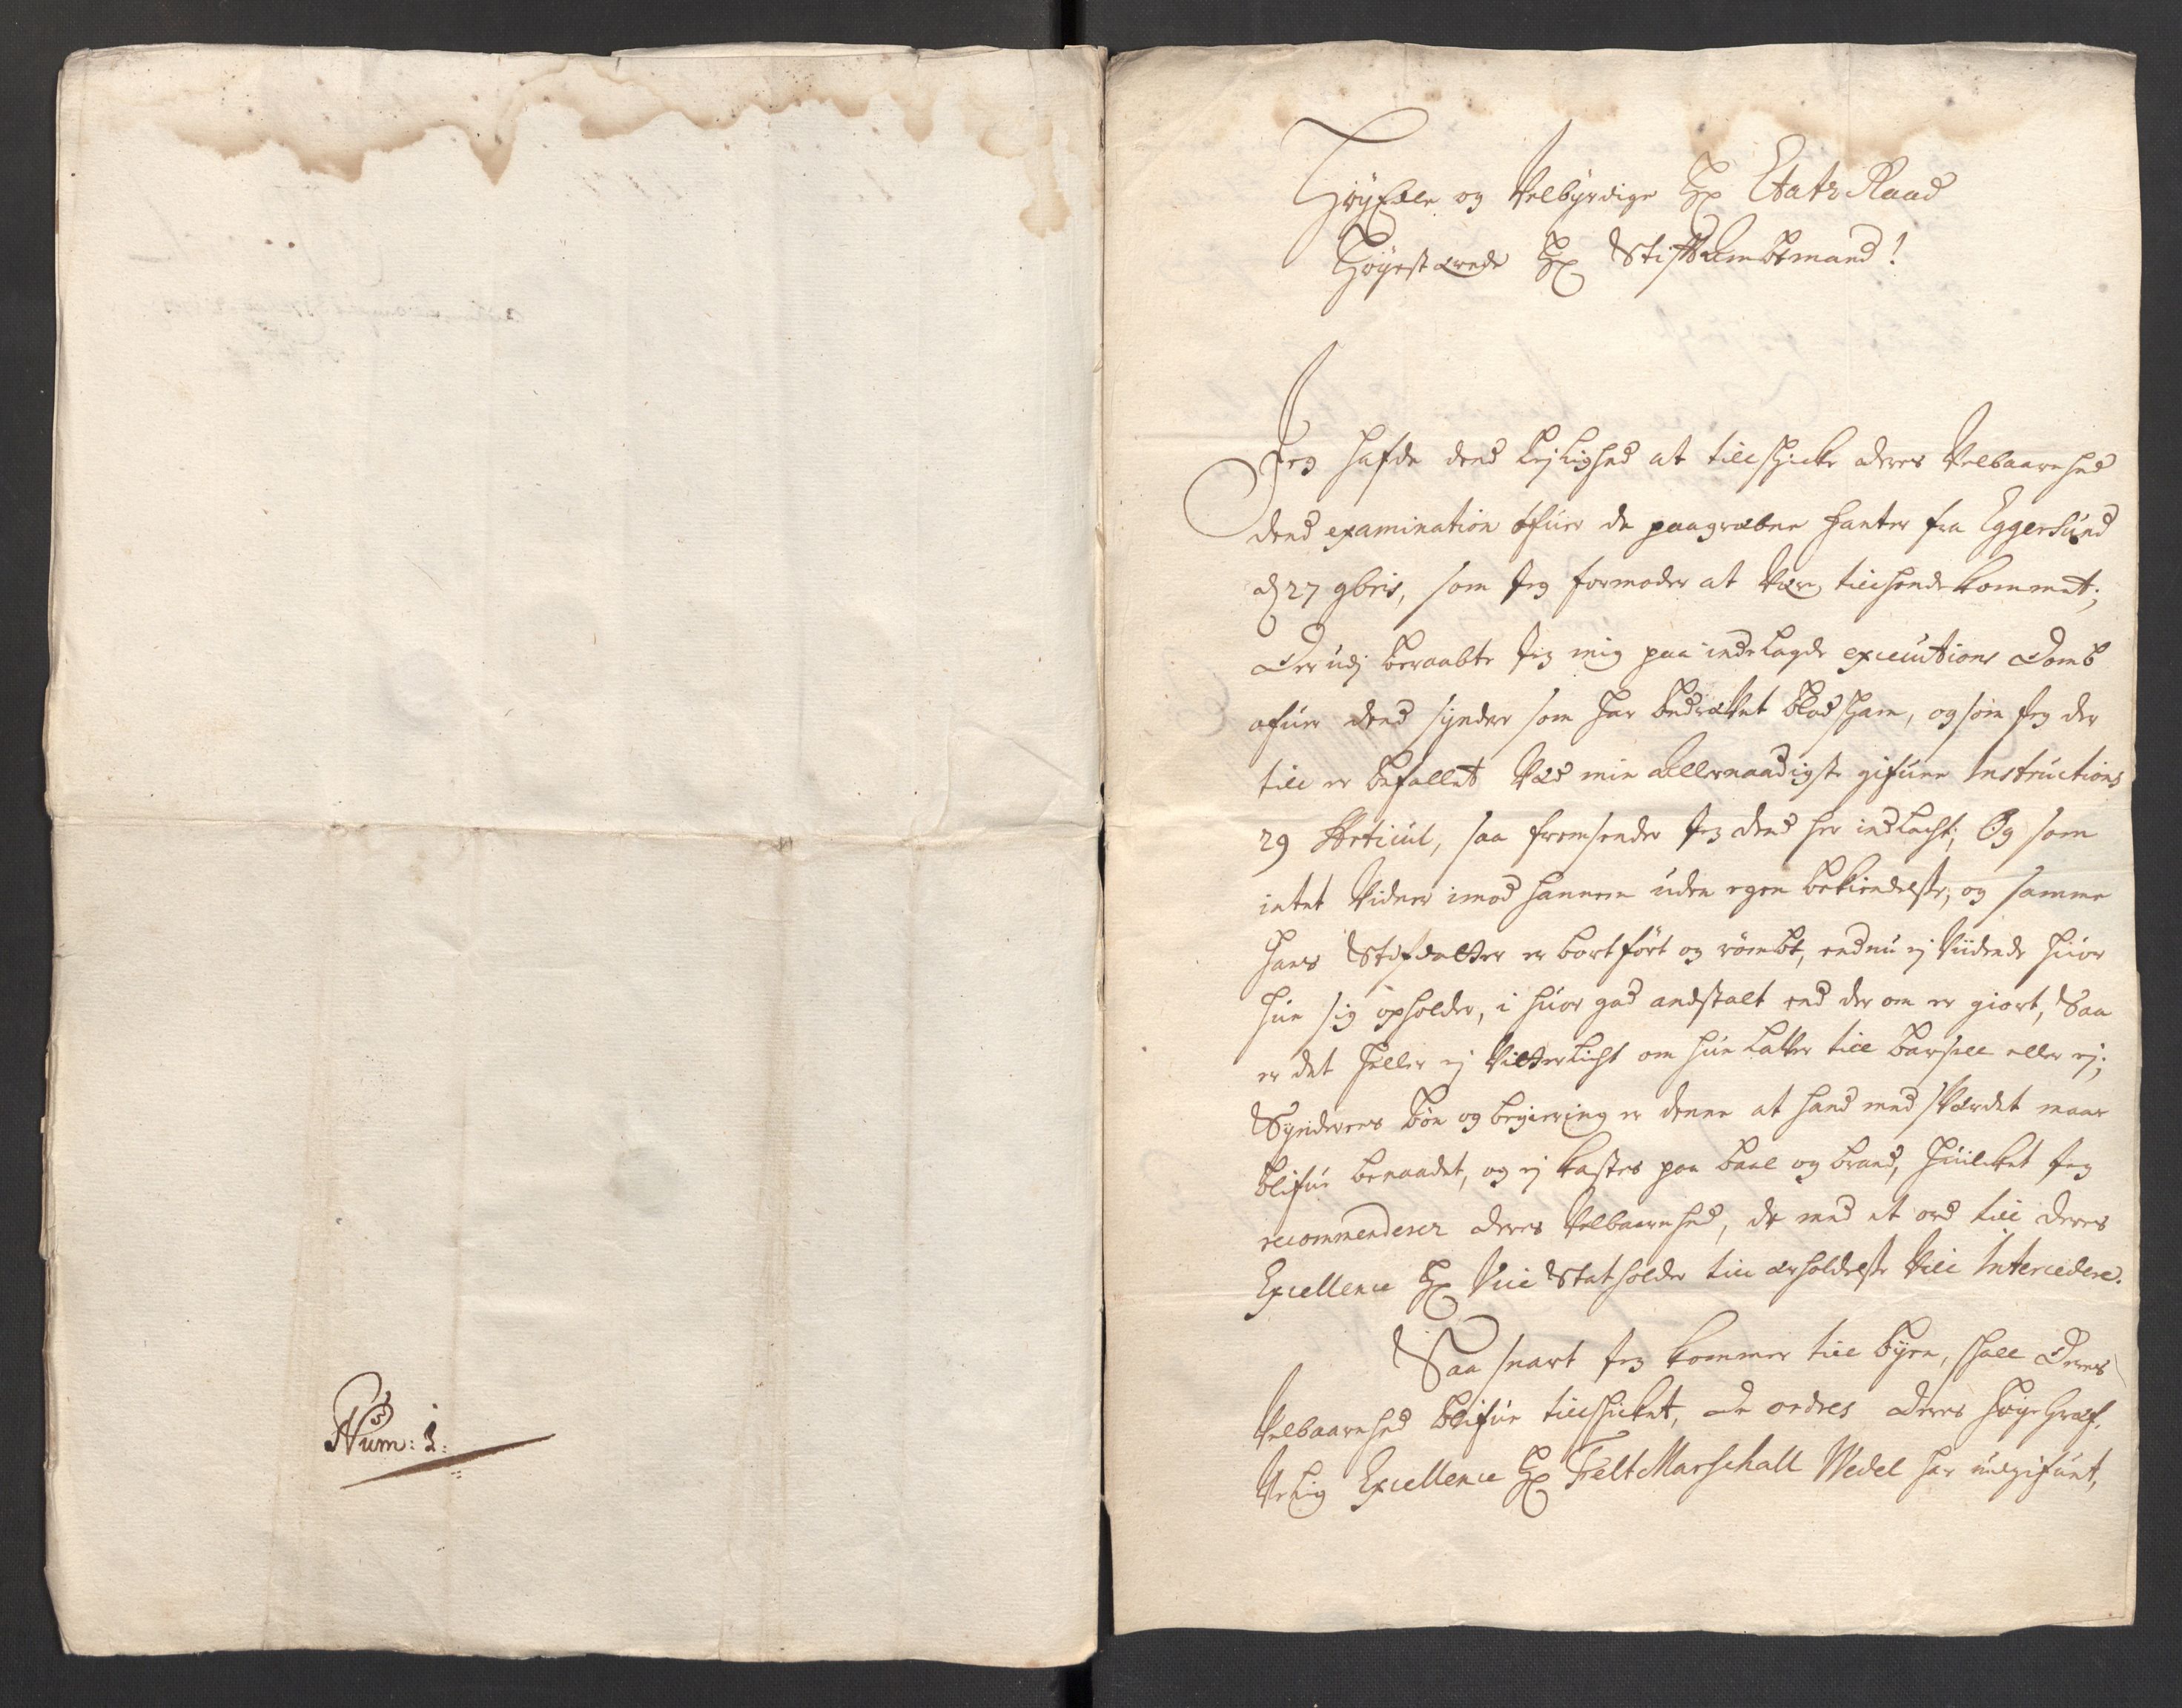 Num: 1:
HøyEdle og Velbyrdige Hr Etatz Raad
Høystærede Hr Stiftambtmand!
Jeg hafde dend Leylighed at tillschicke deres Velbaarenhed
dend examination ofuer de paagrebne fanter fra Eggersund
d 27 9bris, som Jeg formoder at være tillhende kommet;
Der udj beraabte Jeg mig paa indelagde executions Domb
ofuer dend synder som har bedrefvet blodskam, og som Jeg der
till er befallet ved min allernaadigste gifuene Instructions
29 Articul, saa fremsender Jeg dend her indlacht; Og som
intet Vidner imod hannem uden egen bekiendelse, og samme
hans Stifdatter er bortført og rømbt, endnu ej vidende huor
hun sig opholder, i huor god andstalt end der om er giort, Saa
er det heller ej vitterlicht om hun Latter till barsell eller ej;
Synderens bøn og begiering er denne at hand med sverdet maae
blifue benaadet, og ej kastes paa baal og brand, huilcket Jeg
recommenderer deres Velbaarenhed, de med et ord till deres
Excellence Hr Vice Statholder till erholdelse vill Intercedere.
Saa snart Jeg kommer till byen, schall Deres
Velbaarenhed blifue tillschicket, de ordres deres høygref-
velig Excellence Hr Felt Marschall Wedel har udgifuet,